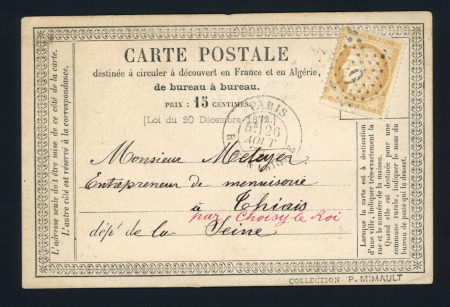 CARTE POSTALE
destinée à circuler à découvert en France et en Algérie,
de bureau à bureau.
PRIX : 15 CENTIMES.
[Loi du 20 Décembre 1872.]
PARIS
26
AOUT
Monsieur Meteyer
Entrepreneur de menuiserie
à Thiais
par Choisy le Roi
dépt de la Seine
L'adresse seule doit être mise de ce côté de la carte.
L'autre côté est réservé à la correspondance.
Lorsque la carte est à destination
d'une ville, indiquer très-exactement la
rue et le numéro de la maison.
Quand elle est destinée pour une
commune rurale, indiquer le nom du
bureau de poste qui la dessert.
COLLECTION P. MIMAULT